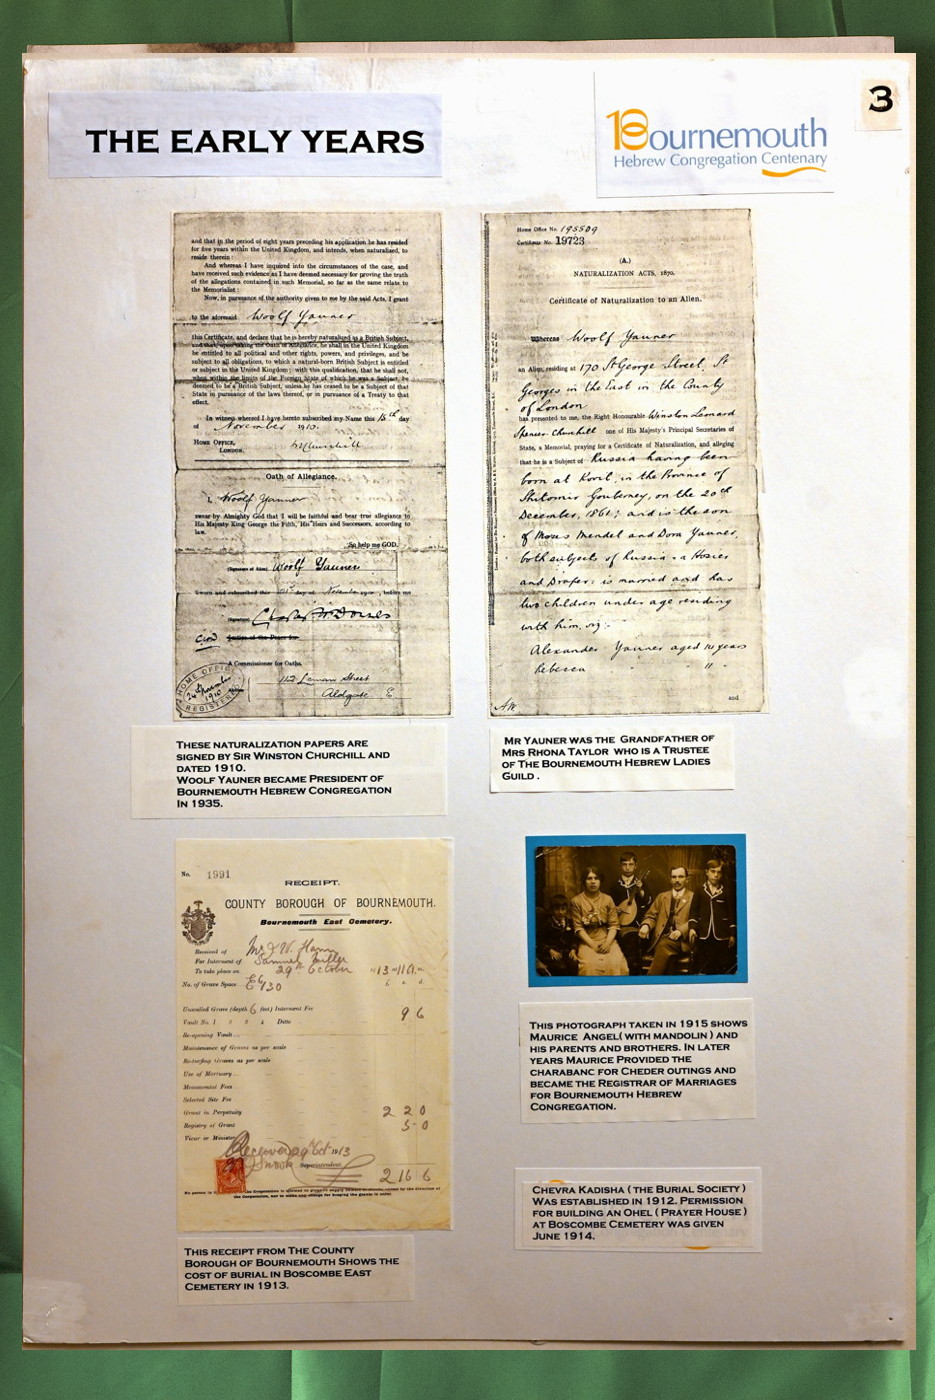 3
THE EARLY YEARS
100 Bournemouth
Hebrew Congregation Centenary
and that in the period of eight years preceding his application he has resided
for five years within the United Kingdom, and intends, when naturalized, to
reside therein:
And whereas I have inquired into the circumstances of the case, and
have received such evidence as I have deemed necessary for proving the truth
of the allegations contained in such Memorial, so far as the same relate to
the Memorialist:
Now, in pursuance of the authority given to me by the said Acts, I grant
to the aforesaid Woolf Yauner
this Certificate, and declare that he is hereby naturalized as a British Subject,
and that, upon taking the Oath of Allegiance, he shall in the United Kingdom
be entitled to all political and other rights, powers, and privileges, and be
subject to all obligations, to which a natural-born British Subject is entitled
or subject in the United Kingdom; with this qualification, that he shall not,
when within the limits of the Foreign State of which he was a Subject, be
deemed to be a British Subject, unless he has ceased to be a Subject of that
State in pursuance of the laws thereof, or in pursuance of a Treaty to that
effect.
In witness whereof I have hereto subscribed my Name this 15th day
of November 1910.
HOME OFFICE,
LONDON.
WSChurchill
Oath of Allegiance.
I, Woolf Yauner
swear by Almighty God that I will be faithful and bear true allegiance to
His Majesty King George the Fifth, His Heirs and Successors, according to
law.
So help me GOD.
(Signature of Alien) Woolf Yauner
Sworn and subscribed this day of November 1910, before me
(Signature)
Justice of the Peace for
A Commissioner for Oaths.
112 Leman Street
Aldgate E
HOME OFFICE
24 November
1910
REGISTERED
Home Office No. 195509
Certificate No. 19723
(A.)
NATURALIZATION ACTS, 1870.
Certificate of Naturalization to an Alien.
Whereas Woolf Yauner
an Alien, residing at 170 St George Street, St
Georges in the East in the County
of London
has presented to me, the Right Honourable Winston Leonard
Spencer Churchill one of His Majesty's Principal Secretaries of
State, a Memorial, praying for a Certificate of Naturalization, and alleging
that he is a Subject of Russia having been
born at Kovil, in the Province of
Shitomir Gouberney, on the 20th
December, 1861; and is the son
of Moses Mendel and Dora Yauner,
both subjects of Russia - a Hosier
and Draper: is married and has
two children under age residing
with him, viz:
Alexander Yauner aged 14 years
Rebecca " " 11 "
and
THESE NATURALIZATION PAPERS ARE
SIGNED BY SIR WINSTON CHURCHILL AND
DATED 1910.
WOOLF YAUNER BECAME PRESIDENT OF
BOURNEMOUTH HEBREW CONGREGATION
IN 1935.
MR YAUNER WAS THE GRANDFATHER OF
MRS RHONA TAYLOR WHO IS A TRUSTEE
OF THE BOURNEMOUTH HEBREW LADIES
GUILD .
No. 1991
RECEIPT.
COUNTY BOROUGH OF BOURNEMOUTH.
Bournemouth East Cemetery.
Received of Mr J. W. Hann
For Interment of Samuel Miller
To take place on 29th October 1913 11 A.m.
No. of Grave Space E6/130
£ s. d.
Unwalled Grave (depth 6 feet) Interment Fee 9 6
Vault No. 1 2 3 4 Ditto
Re-opening Vault
Maintenance of Graves as per scale
Re-turfing Graves as per scale
Use of Mortuary
Monumental Fees
Selected Site Fee
Grant in Perpetuity 2 2 0
Registry of Grant 5 0
Vicar or Minister
Received 29 Oct 1913
Superintendent.
2 16 6
THIS RECEIPT FROM THE COUNTY
BOROUGH OF BOURNEMOUTH SHOWS THE
COST OF BURIAL IN BOSCOMBE EAST
CEMETERY IN 1913.
THIS PHOTOGRAPH TAKEN IN 1915 SHOWS
MAURICE ANGEL( WITH MANDOLIN ) AND
HIS PARENTS AND BROTHERS. IN LATER
YEARS MAURICE PROVIDED THE
CHARABANC FOR CHEDER OUTINGS AND
BECAME THE REGISTRAR OF MARRIAGES
FOR BOURNEMOUTH HEBREW
CONGREGATION.
CHEVRA KADISHA ( THE BURIAL SOCIETY )
WAS ESTABLISHED IN 1912. PERMISSION
FOR BUILDING AN OHEL ( PRAYER HOUSE )
AT BOSCOMBE CEMETERY WAS GIVEN
JUNE 1914.